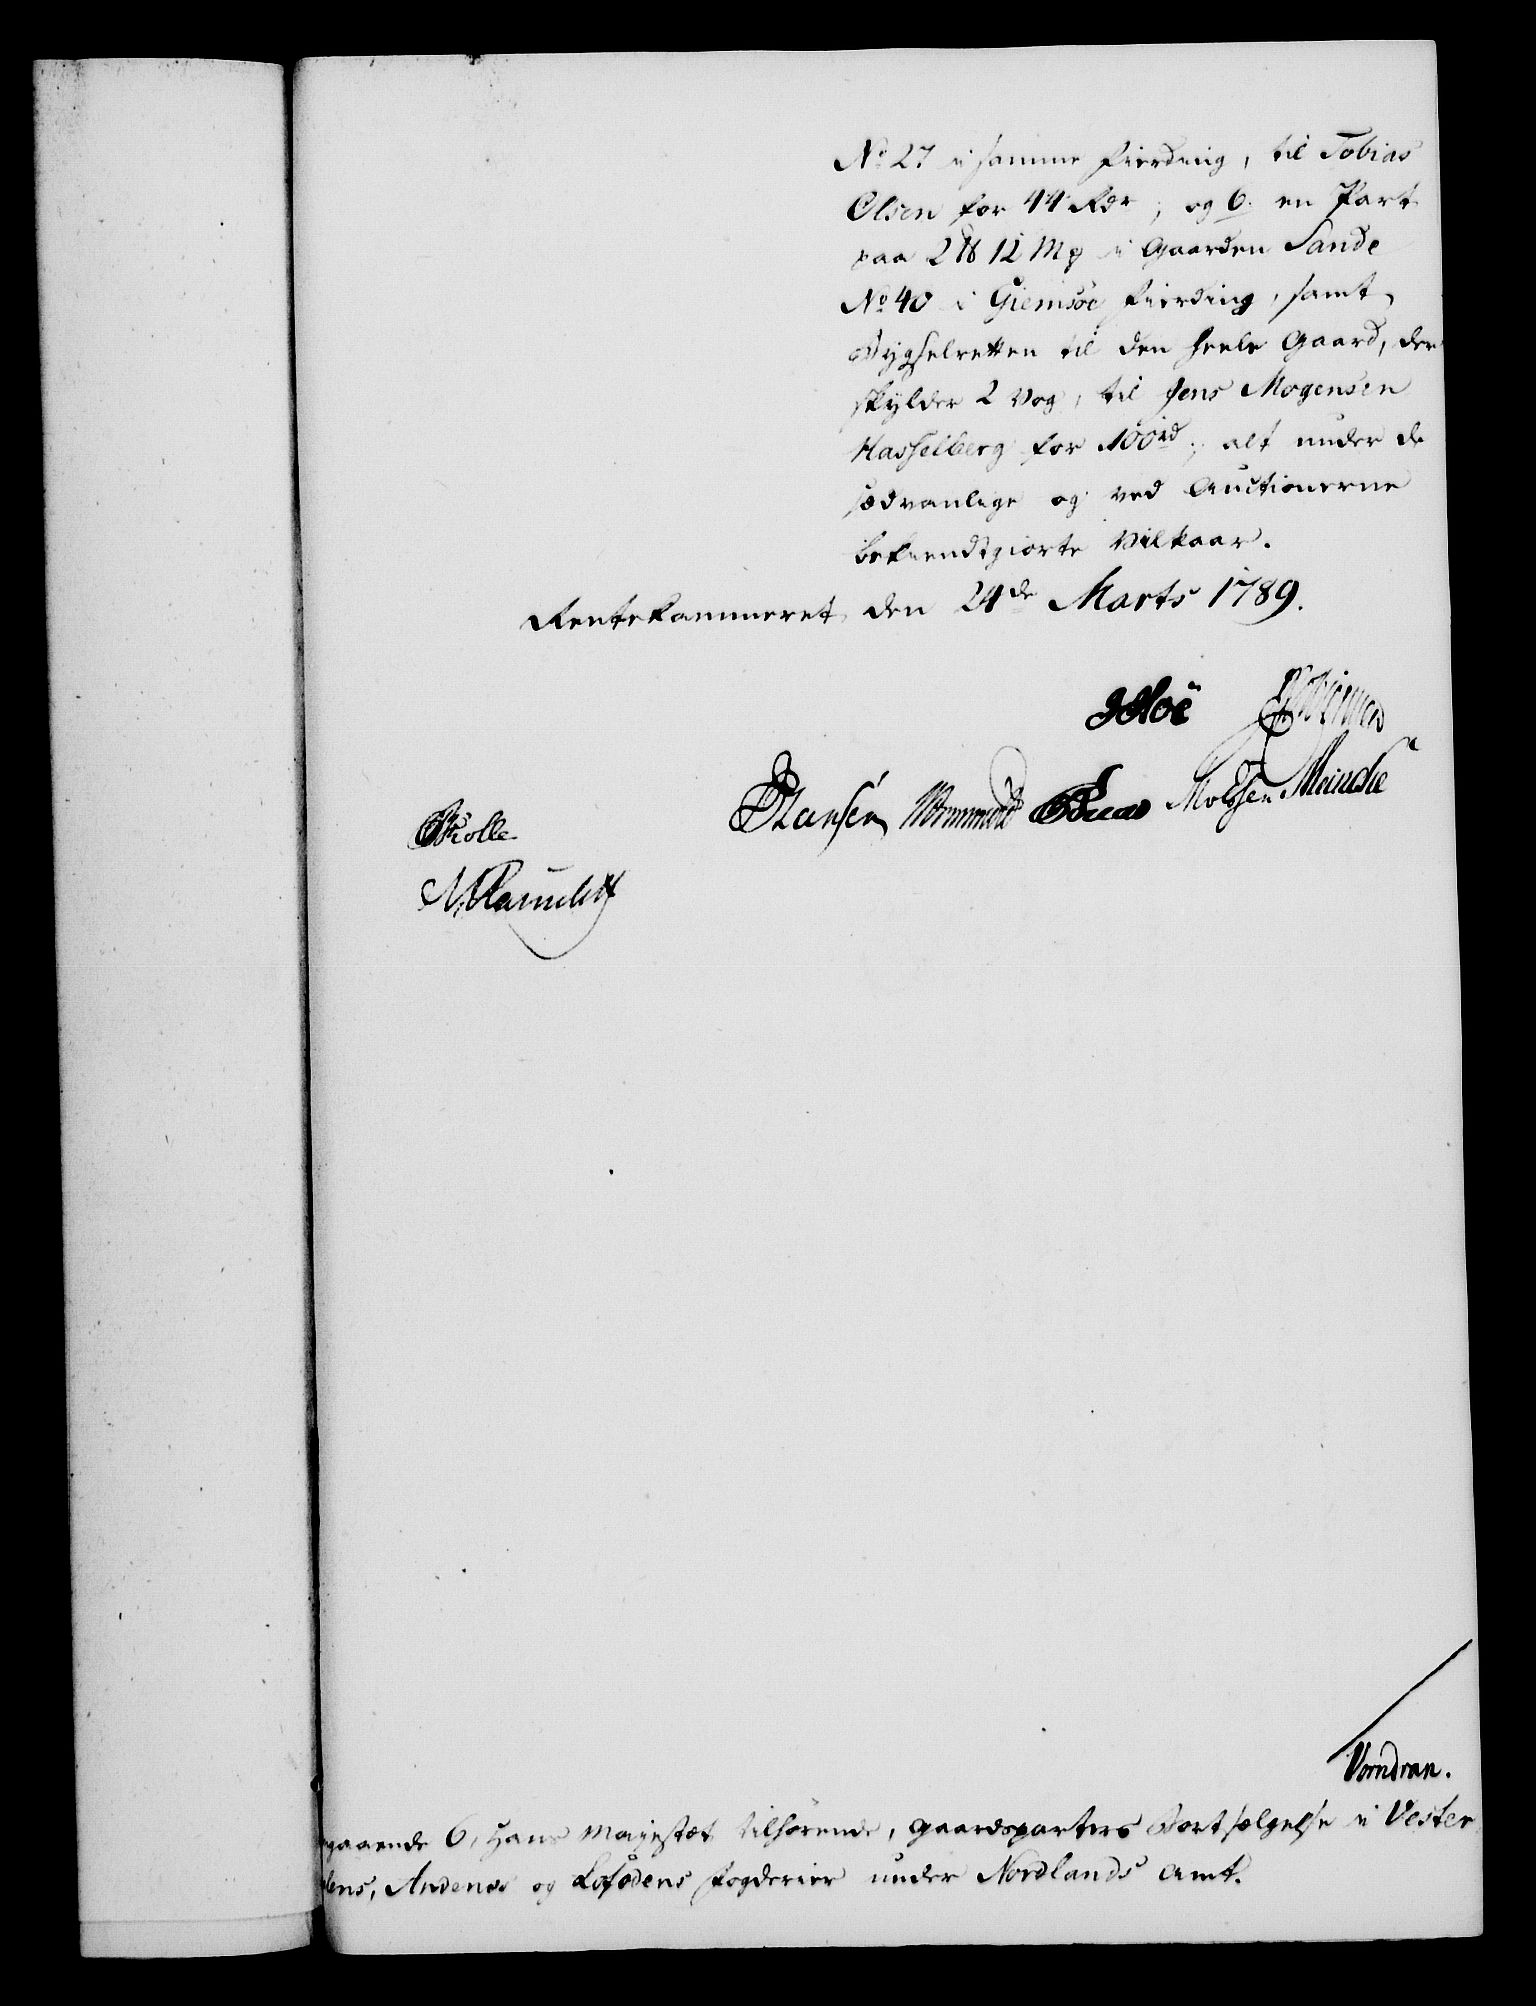 No 27 i samme Fierding, til Tobias
Olsen for 44 Rdr, og 6. en Part
paa 2 ℔ 12 Mk i Gaarden Sande
No 40 i Giemsöe Fierding, samt
Bygselretten til den heele Gaard, der
skylder 2 Vog, til Jens Mogensen
Hasselberg for 100 rd; alt under de
sædvanlige og ved Auctionerne
bekiendtgiorte Vilkaar.
Rentekammeret den 24de Marts 1789.
Hansen Wormskiold Moldsen Meincke
Skolle
Vorndran.
gaaende 6, Hans Majestæt tilhørende, Gaardsparters Bortsælgelse i Vester
lens, Andenes og Lofodens Fogderier under Nordlands Amt.